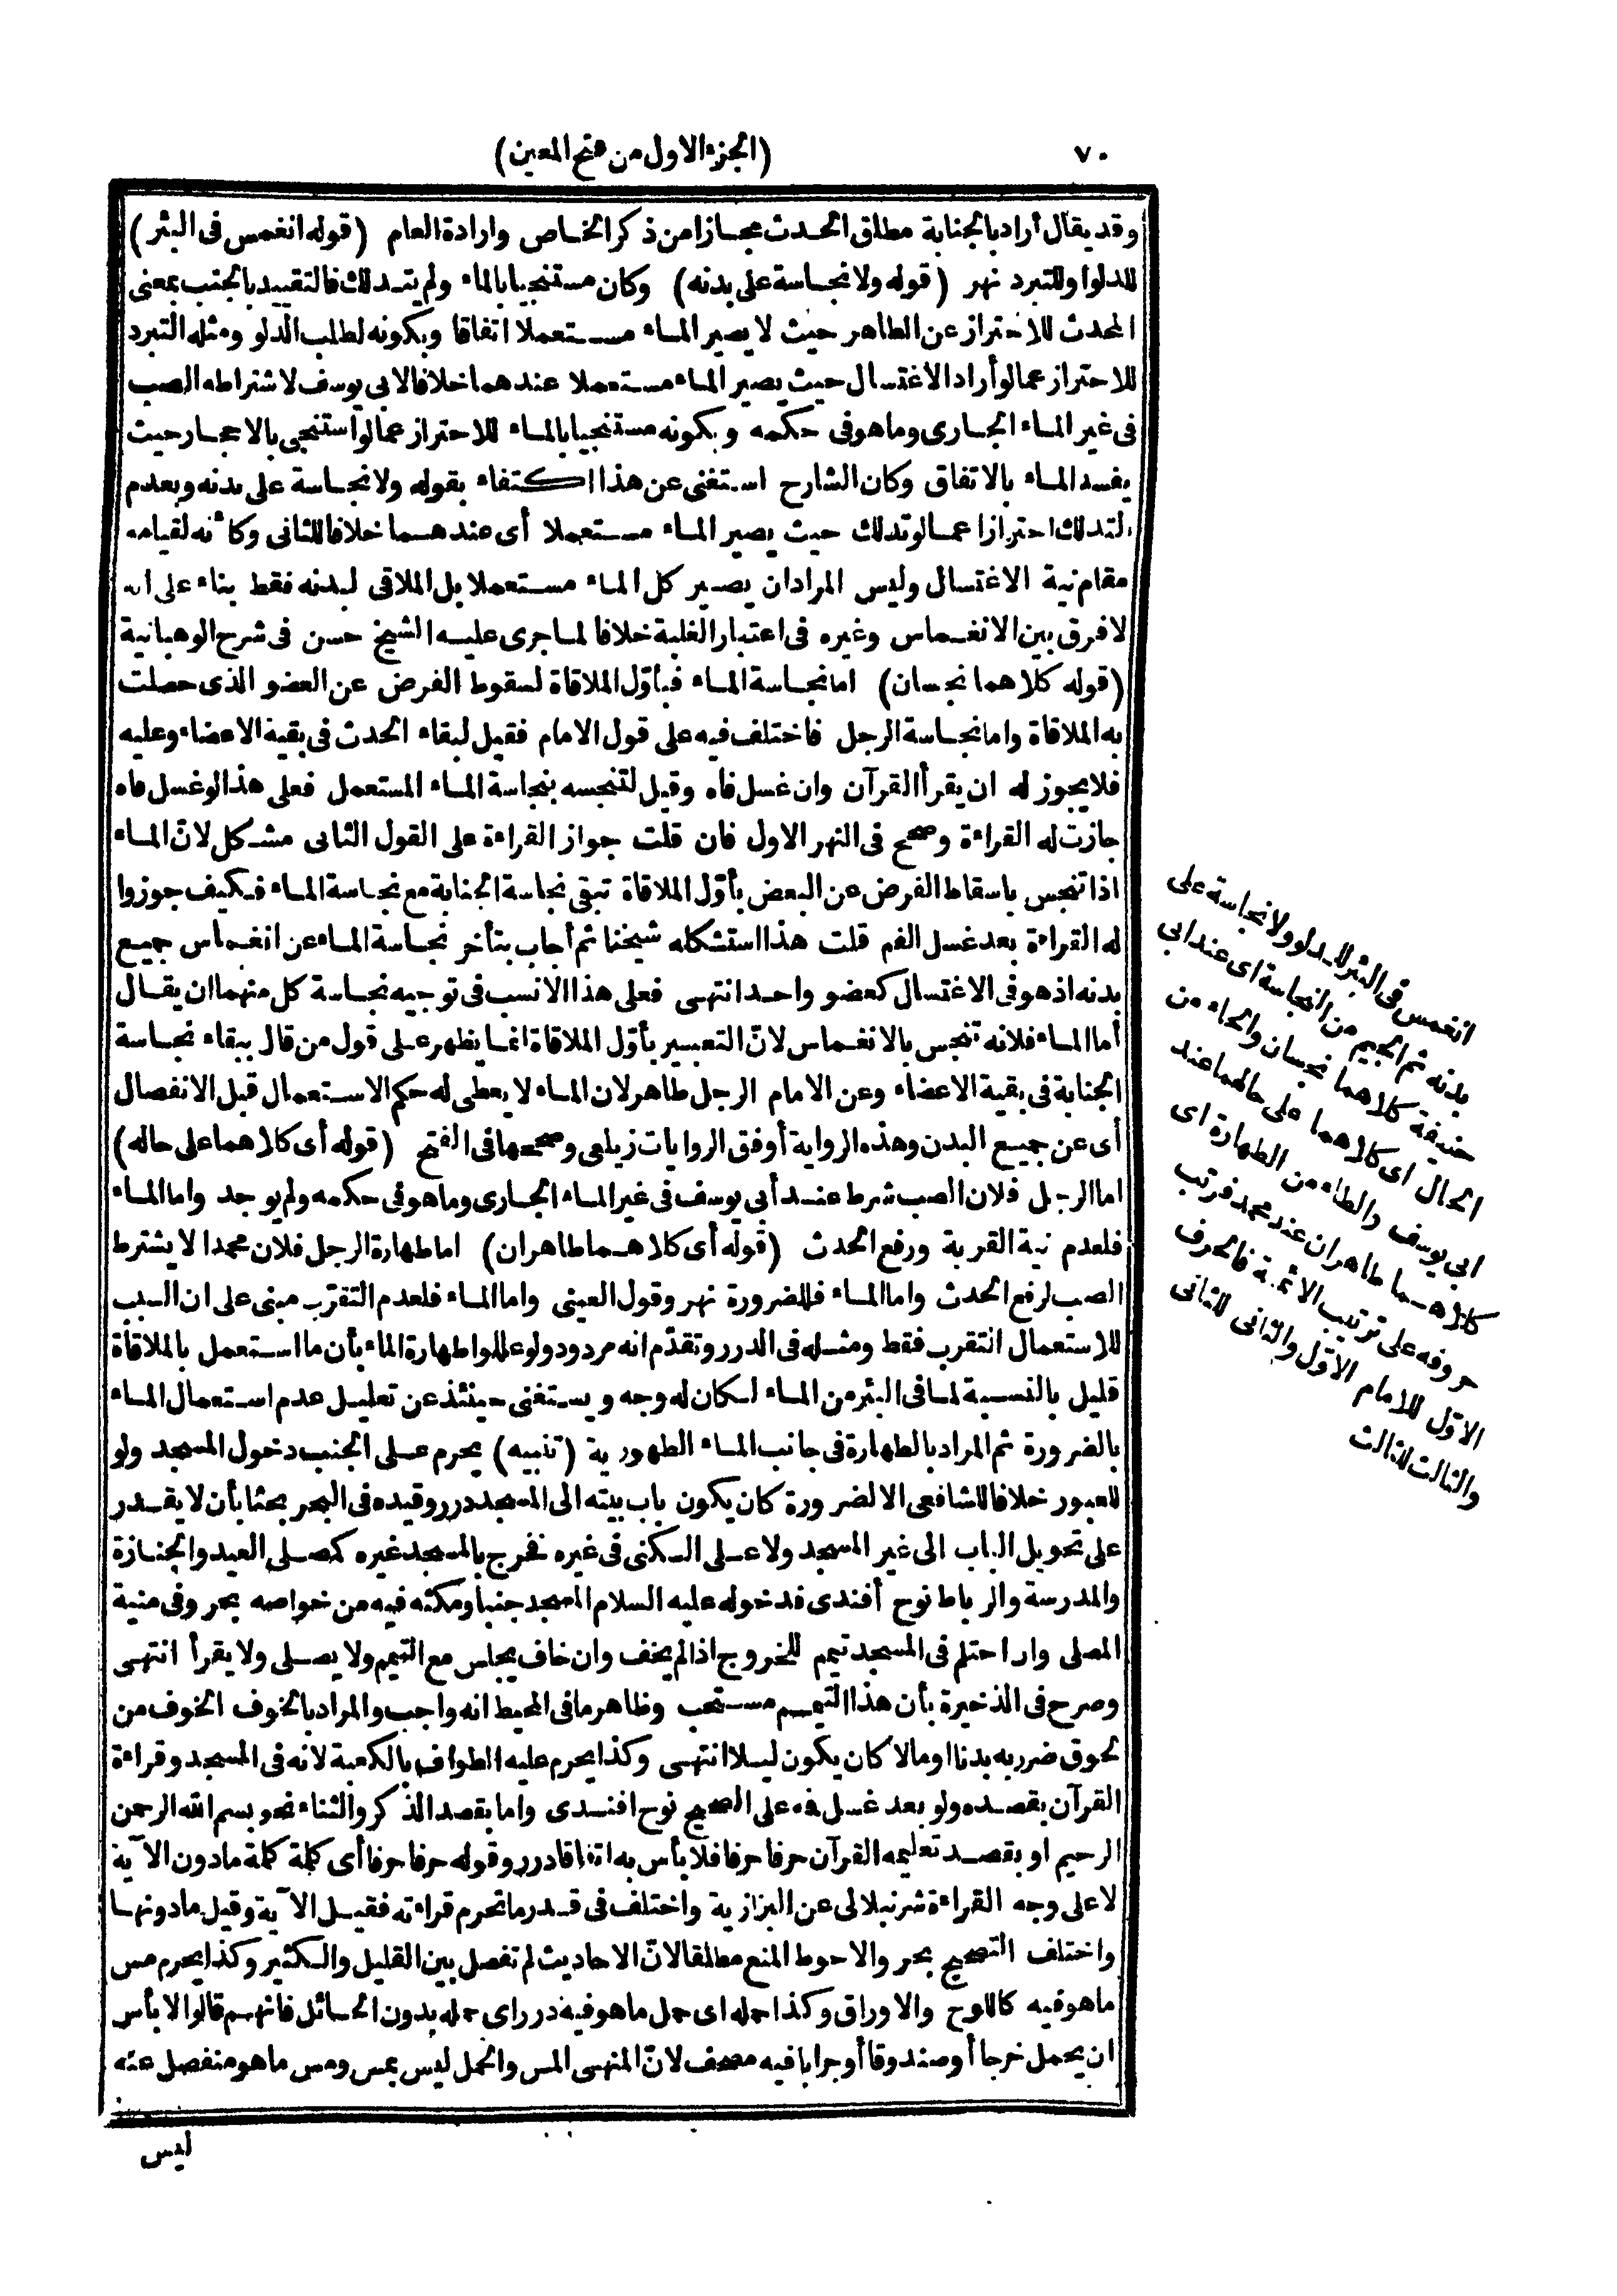 ٧٠
(الجزء الاول من فتح المعين)
وقد يقال أراد بالجنابة مطلق الحدث مجازا من ذكر الخاص وارادة العام (قوله انغمس فى البئر)
للدلو اوللتبرد نهر (قوله ولا نجاسة على بدنه) وكان مستنجيا بالماء ولم يتدلك فالتقييد بالجنب بمعنى
المحدث للاحتراز عن الطاهر حيث لا يصير الماء مستعملا اتفاقا وبكونه لطلب الدلو ومثله التبرد
للاحتراز عما لو أراد الاغتسال حيث يصير الماء مستعملا عندهما خلافا لابى يوسف لاشتراطه الصب
فى غير الماء الجارى وما هو فى حكمه وبكونه مستنجيا بالماء للاحتراز عما لو استنجى بالاحجار حيث
يفسد الماء بالاتفاق وكان الشارح استغنى عن هذا اكتفاء بقوله ولا نجاسة على بدنه وبعدم
التدلك احترازا عما لو تدلك حيث يصير الماء مستعملا أى عندهما خلافا للثانى وكأنه لقيامه
مقام نية الاغتسال وليس المراد ان يصير كل الماء مستعملا بل الملاقى لبدنه فقط بناء على انه
لا فرق بين الانغماس وغيره فى اعتبار الغلبة خلافا لما جرى عليه الشيخ حسن فى شرح الوهبانية
(قوله كلاهما نجسان) اما نجاسة الماء فبأوّل الملاقاة لسقوط الفرض عن العضو الذى حصلت
به الملاقاة واما نجاسة الرجل فاختلف فيه على قول الامام فقيل لبقاء الحدث فى بقية الاعضاء وعليه
فلا يجوز له ان يقرأ القرآن وان غسل فاه وقيل لتنجسه بنجاسة الماء المستعمل فعلى هذا لو غسل فاه
جازت له القراءة وصحح فى النهر الاول فان قلت جواز القراءة على القول الثانى مشكل لانّ الماء
اذا تنجس باسقاط الفرض عن البعض بأوّل الملاقاة تبقى نجاسة الجنابة مع نجاسة الماء فكيف جوزوا
له القراءة بعد غسل الفم قلت هذا استشكله شيخنا ثم أجاب بتأخر نجاسة الماء عن انغماس جميع
بدنه اذ هو فى الاغتسال كعضو واحد انتهى فعلى هذا الانسب فى توجيه نجاسة كل منهما ان يقال
أما الماء فلانه تنجس بالانغماس لانّ التعبير بأوّل الملاقاة انما يظهر على قول من قال ببقاء نجاسة
الجنابة فى بقية الاعضاء وعن الامام الرجل طاهر لان الماء لا يعطى له حكم الاستعمال قبل الانفصال
أى عن جميع البدن وهذه الرواية أوفق الروايات زيلعى وصححها فى الفتح (قوله أى كلاهما على حاله)
اما الرجل فلان الصب شرط عند أبى يوسف فى غير الماء الجارى وما هو فى حكمه ولم يوجد واما الماء
فلعدم نية القربة ورفع الحدث (قوله أى كلاهما طاهران) اما طهارة الرجل فلان محمدا لا يشترط
الصب لرفع الحدث واما الماء فللضرورة نهر وقول العينى واما الماء فلعدم التقرّب مبنى على ان السبب
للاستعمال التقرب فقط ومثله فى الدرر وتقدّم انه مردود ولو عللوا طهارة الماء بأن ما استعمل بالملاقاة
قليل بالنسبة لما فى البئر من الماء لكان له وجه ويستغنى حينئذ عن تعليل عدم استعمال الماء
بالضرورة ثم المراد بالطهارة فى جانب الماء الطهورية (تنبيه) يحرم على الجنب دخول المسجد ولو
للعبور خلافا للشافعى الا لضرورة كان يكون باب بيته الى المسجد درر وقيده فى البحر بحثا بأن لا يقدر
على تحويل الباب الى غير المسجد ولا على السكنى فى غيره فخرج بالمسجد غيره كمصلى العيد والجنازة
والمدرسة والرباط نوح أفندى فدخوله عليه السلام المسجد جنبا ومكثه فيه من خواصه بحر وفى منية
المصلى وان احتلم فى المسجد تيمم للخروج اذا لم يخف وان خاف يجلس مع التيمم ولا يصلى ولا يقرأ انتهى
وصرح فى الذخيرة بأن هذا التيمم مستحب وظاهر ما فى المحيط انه واجب والمراد بالخوف الخوف من
لحوق ضرر به بدنا او مالا كان يكون ليلا انتهى وكذا يحرم عليه الطواف بالكعبة لانه فى المسجد وقراءة
القرآن بقصده ولو بعد غسل فمه على الصحيح نوح افندى واما بقصد الذكر والثناء نحو بسم الله الرحمن
الرحيم او بقصد تعليمه القرآن حرفا حرفا فلا بأس به اتفاقا درر وقوله حرفا حرفا أى كلمة كلمة ما دون الآية
لا على وجه القراءة شرنبلالى عن البزازية واختلف فى قدر ما تحرم قراءته فقيل الآية وقيل ما دونها
واختلف التصحيح بحر والاحوط المنع مطلقا لانّ الاحاديث لم تفصل بين القليل والكثير وكذا يحرم مس
ما هو فيه كاللوح والاوراق وكذا حمله اى حمل ما هو فيه درر اى حمله بدون الحائل فانهم قالوا لا بأس
ان يحمل خرجا أو صندوقا أو جرابا فيه مصحف لانّ المنهى المس والحمل ليس بمس ومس ما هو منفصل عنه
ليس
انغمس فى البئر للدلو ولا نجاسة على
بدنه ثم الجيم من النجاسة اى عند ابى
حنيفة كلاهما نجسان والحاء من
الحال اى كلاهما على حالهما عند
ابى يوسف والطاء من الطهارة اى
كلاهما طاهران عند محمد فرتب
حروفه على ترتيب الائمة فالحرف
الاوّل للامام الاوّل والثانى للثانى
والثالث للثالث